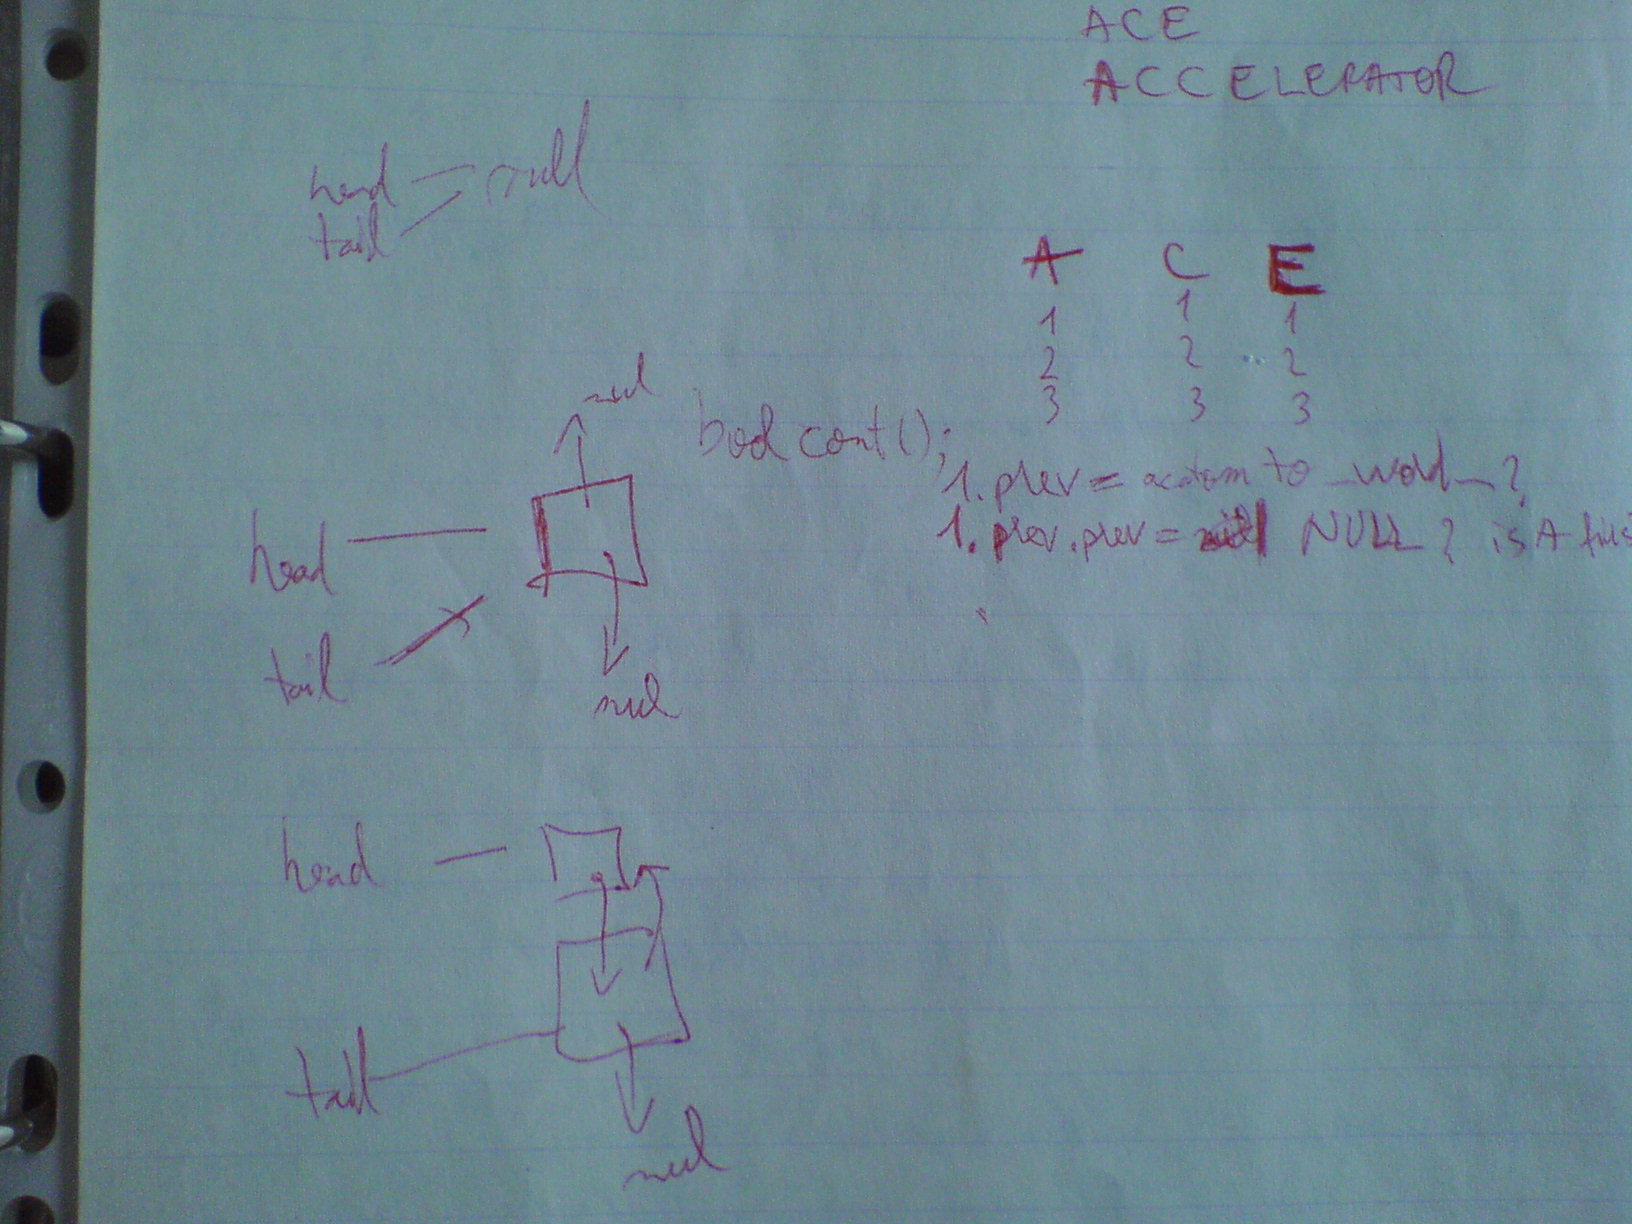 ACE
ACCELERATOR
head null
tail
A C E
1 1 1
2 2 2
3 3 3
null
bool cont();
1.prev = to word ?
1.prev.prev = NULL ? is A
head
tail
null
head
tail
null